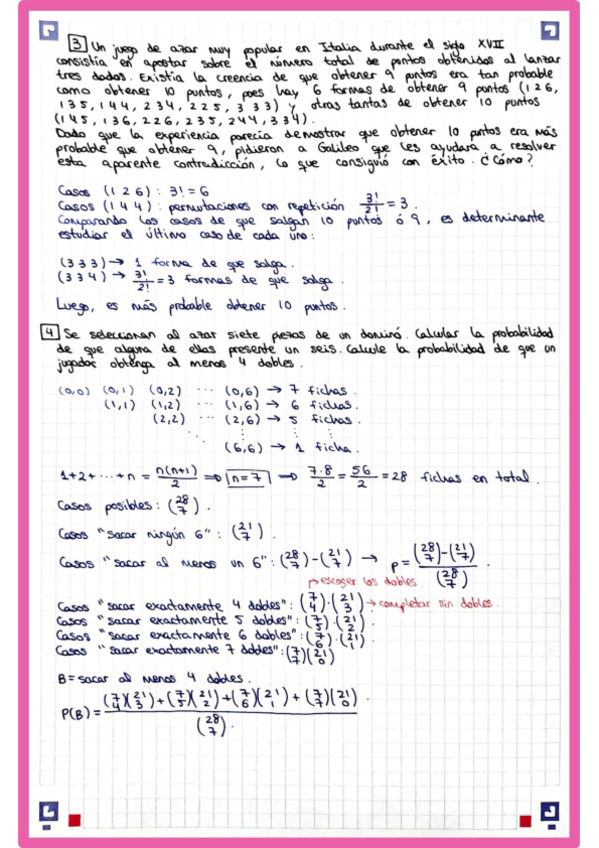 3 Un juego de azar muy popular en Italia durante el siglo XVII
consistía en apostar sobre el número total de puntos obtenidos al lanzar
tres dados. Existía la creencia de que obtener 9 puntos era tan probable
como obtener 10 puntos, pues hay 6 formas de obtener 9 puntos (126,
135, 144, 234, 225, 333) y otras tantas de obtener 10 puntos
(145, 136, 226, 235, 244, 334).
Dado que la experiencia parecía demostrar que obtener 10 puntos era más
probable que obtener 9, pidieron a Galileo que les ayudara a resolver
esta aparente contradicción, lo que consiguió con éxito. ¿Cómo?
Casos (1 2 6) : 3! = 6
Casos (1 4 4) : permutaciones con repetición 3!/2! = 3.
Comparando los casos de que salgan 10 puntos ó 9, es determinante
estudiar el último caso de cada uno:
(3 3 3) → 1 forma de que salga.
(3 3 4) → 3!/2! = 3 formas de que salga.
Luego, es más probable obtener 10 puntos.
4 Se seleccionan al azar siete piezas de un dominó. Calcular la probabilidad
de que alguna de ellas presente un seis. Calcule la probabilidad de que un
jugador obtenga al menos 4 dobles.
(0,0) (0,1) (0,2) ... (0,6) → 7 fichas.
(1,1) (1,2) ... (1,6) → 6 fichas.
(2,2) ... (2,6) → 5 fichas.
(6,6) → 1 ficha.
1+2+...+n = n(n+1)/2 ⇒ n=7 ⇒ 7·8/2 = 56/2 = 28 fichas en total.
Casos posibles: (28 7).
Casos "sacar ningún 6" : (21 7)
Casos "sacar al menos un 6" : (28 7) - (21 7) → p = ((28 7) - (21 7))/(28 7)
→ escoger los dobles.
Casos "sacar exactamente 4 dobles" : (7 4)·(21 3) → completar sin dobles.
Casos "sacar exactamente 5 dobles" : (7 5)·(21 2)
Casos "sacar exactamente 6 dobles" : (7 6)·(21 1)
Casos "sacar exactamente 7 dobles" : (7 7)(21 0)
B = sacar al menos 4 dobles.
P(B) = ((7 4)(21 3) + (7 5)(21 2) + (7 6)(21 1) + (7 7)(21 0))/(28 7).